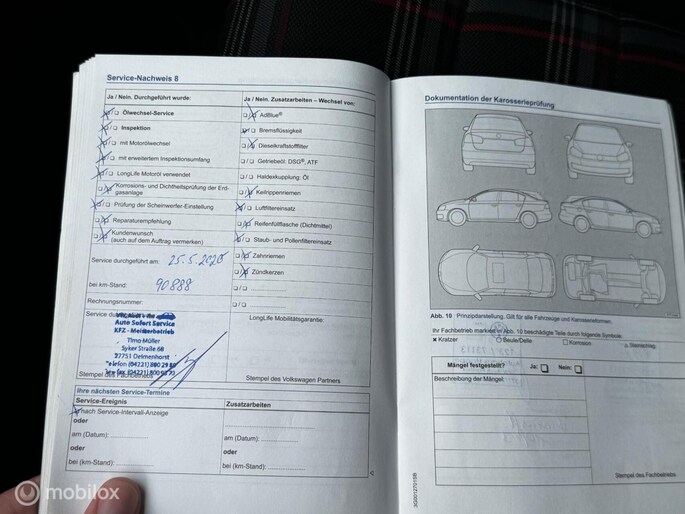 Service-Nachweis 8
Ja / Nein. Durchgeführt wurde:
Ölwechsel-Service
Inspektion
mit Motorölwechsel
mit erweitertem Inspektionsumfang
LongLife Motoröl verwendet
Korrosions- und Dichtheitsprüfung der Erd-
gasanlage
Prüfung der Scheinwerfer-Einstellung
Reparaturempfehlung
Kundenwunsch
(auch auf dem Auftrag vermerken)
Service durchgeführt am: 25.5.2020
bei km-Stand: 90888
Rechnungsnummer:
Service
Auto Sofort Service
KFZ - Meisterbetrieb
Timo Müller
Syker Straße 68
27751 Delmenhorst
Stempel des
Ja / Nein. Zusatzarbeiten – Wechsel von:
AdBlue®
Bremsflüssigkeit
Dieselkraftstofffilter
Getriebeöl: DSG®, ATF
Haldexkupplung: Öl
Keilrippenriemen
Luftfiltereinsatz
Reifenfüllflasche (Dichtmittel)
Staub- und Pollenfiltereinsatz
Zahnriemen
Zündkerzen
LongLife Mobilitätsgarantie:
Stempel des Volkswagen Partners
Ihre nächsten Service-Termine
Service-Ereignis
nach Service-Intervall-Anzeige
oder
am (Datum):
oder
bei (km-Stand):
Zusatzarbeiten
am (Datum):
oder
bei (km-Stand):
Dokumentation der Karosserieprüfung
Abb. 10 Prinzipdarstellung. Gilt für alle Fahrzeuge und Karosserieformen.
Ihr Fachbetrieb markiert in Abb. 10 beschädigte Teile durch folgende Symbole:
x Kratzer
Beule/Delle
Korrosion
Steinschlag
Mängel festgestellt? Ja: Nein:
Beschreibung der Mängel:
Stempel des Fachbetriebs
3G0012701SB
mobilox